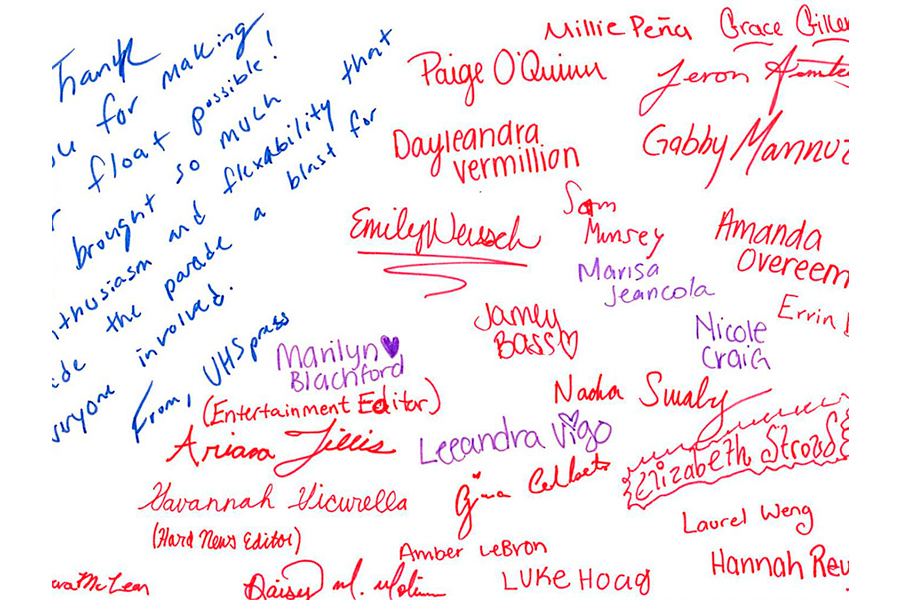 Thank
for making
float possible!
brought so much
and flexability that
the parade a blast for
involved.
From, UHS press
Millie Peña
Grace
Paige O'Quinn
Jeron
Dayleandra
Vermillion
Gabby
Sam
Munsey
Emily
Amanda
Overeem
Marisa
Jeancola
Errin
Jamey
Bass
Nicole
Craig
Marilyn
Blachford
(Entertainment Editor)
Nadia Swaby
Ariana Jillis
Leeandra Vigo
Elizabeth
Savannah Vicurella
Gina
(Hard News Editor)
Laurel Weng
Amber LeBron
Hannah
McLean
Daisey M. Molina
Luke Hoag